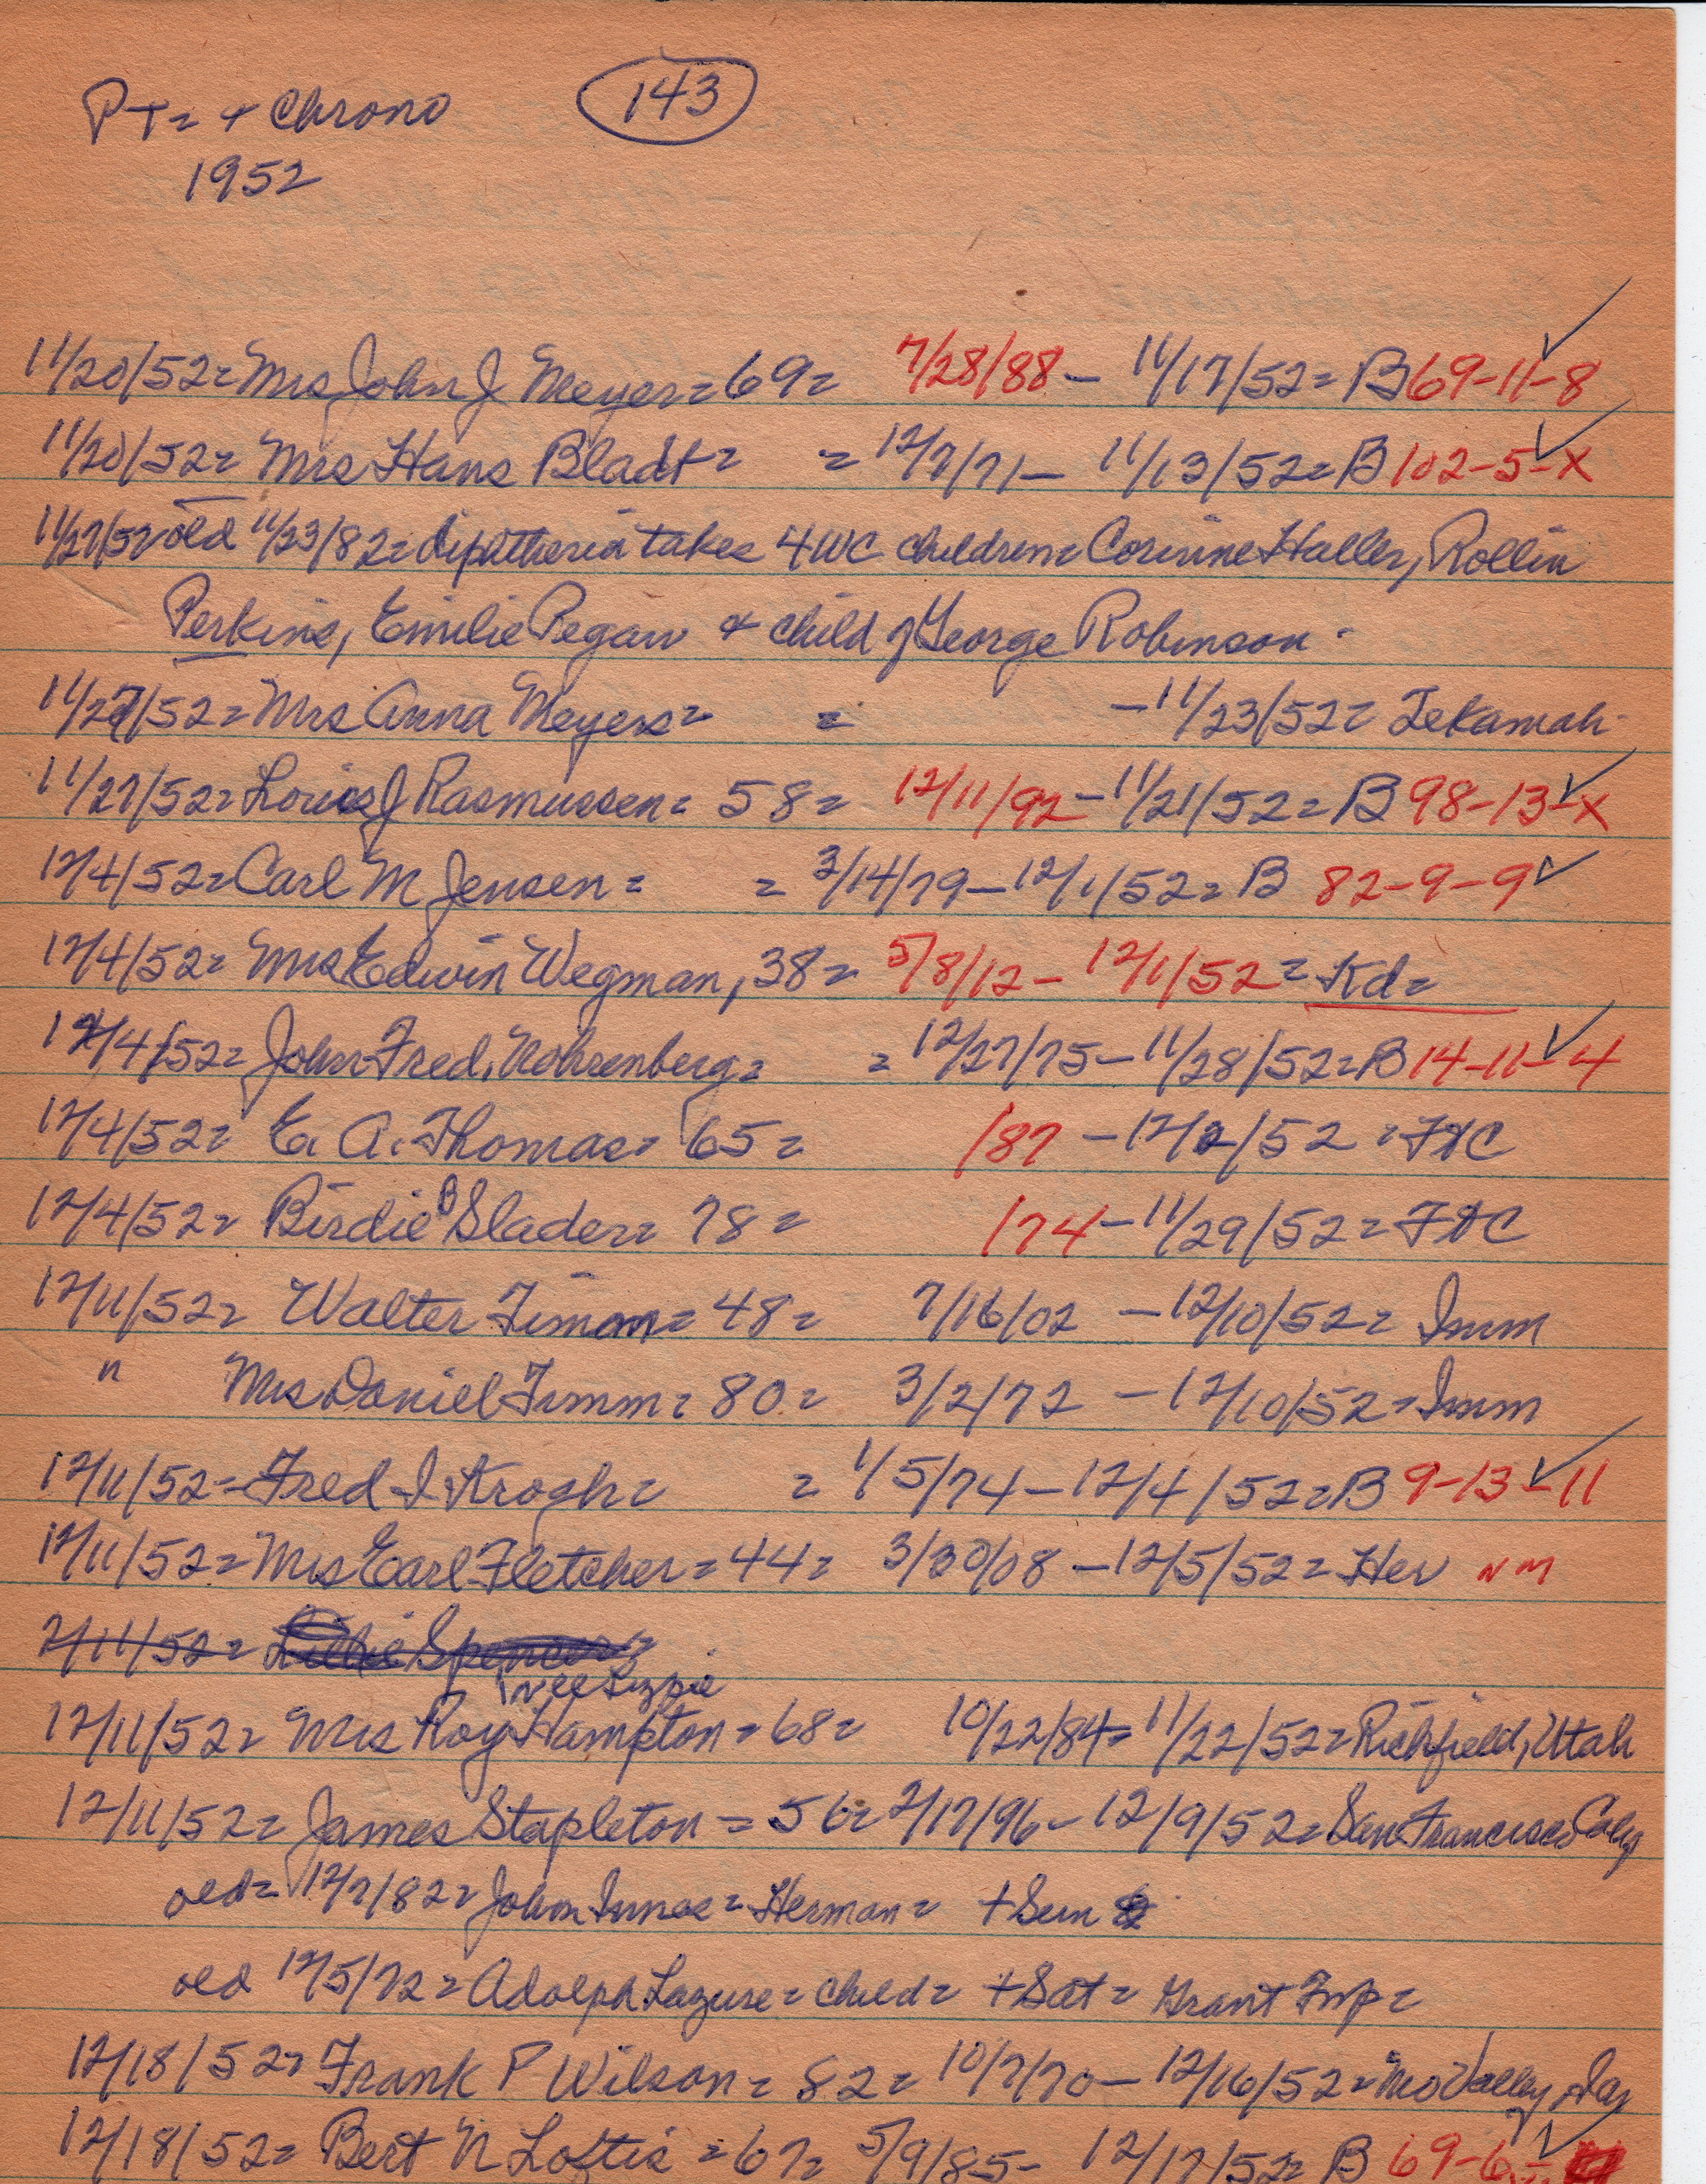 PT= + Chrono 143
1952
11/20/52= Mrs John J Meyer= 69= 7/28/88 - 11/17/52= B 69-11-8
11/20/52= Mrs Hans Bladt= = 12/7/71- 11/13/52= B 102-5-X
11/27/52 old 11/23/82= diphtheria takes 4 WC children= Corinne Haller, Rollin
Perkins, Emilie Pegau + child of George Robinson-
11/27/52= Mrs Anna Meyers= = -11/23/52= Tekamah-
11/27/52= Louis J Rasmussen= 58= 12/11/92-11/21/52= B 98-13-X
12/4/52= Carl M Jensen= = 3/14/79-12/1/52= B 82-9-9
12/4/52= Mrs Edwin Wegman, 38= 5/8/12- 12/1/52= Kd=
12/4/52= John Fred. Nohrenberg= = 12/27/75-11/28/52= B 14-11-4
12/4/52= E. A. Thomas= 65= /87 -12/2/52 = FtC
12/4/52= Birdie B Slader= 78= /74-11/29/52= FtC
12/11/52= Walter Timm= 48= 7/16/02 -12/10/52= Imm
" Mrs Daniel Timm= 80= 3/2/72 -12/10/52= Imm
12/11/52= Fred I Krogh= = 1/5/74-12/4/52= B 9-13-11
12/11/52= Mrs Earl Fletcher= 44= 3/30/08 -12/5/52= Her NM
2/11/52= Spencer=
nee Lizzie
12/11/52= Mrs Roy Hampton= 68= 10/22/84= 11/22/52= Richfield, Utah
12/11/52= James Stapleton= 56= 2/17/96- 12/9/52= San Francisco Calif
old= 12/7/82= John Innes= Herman= + Sun
old 12/5/72= Adolph Lazure= child= + Sat= Grant Twp=
12/18/52= Frank P Wilson= 82= 10/7/70- 12/16/52= Mo Valley, Ia
12/18/52= Bert N Loftis =67= 5/9/85- 12/17/52= B 69-6-